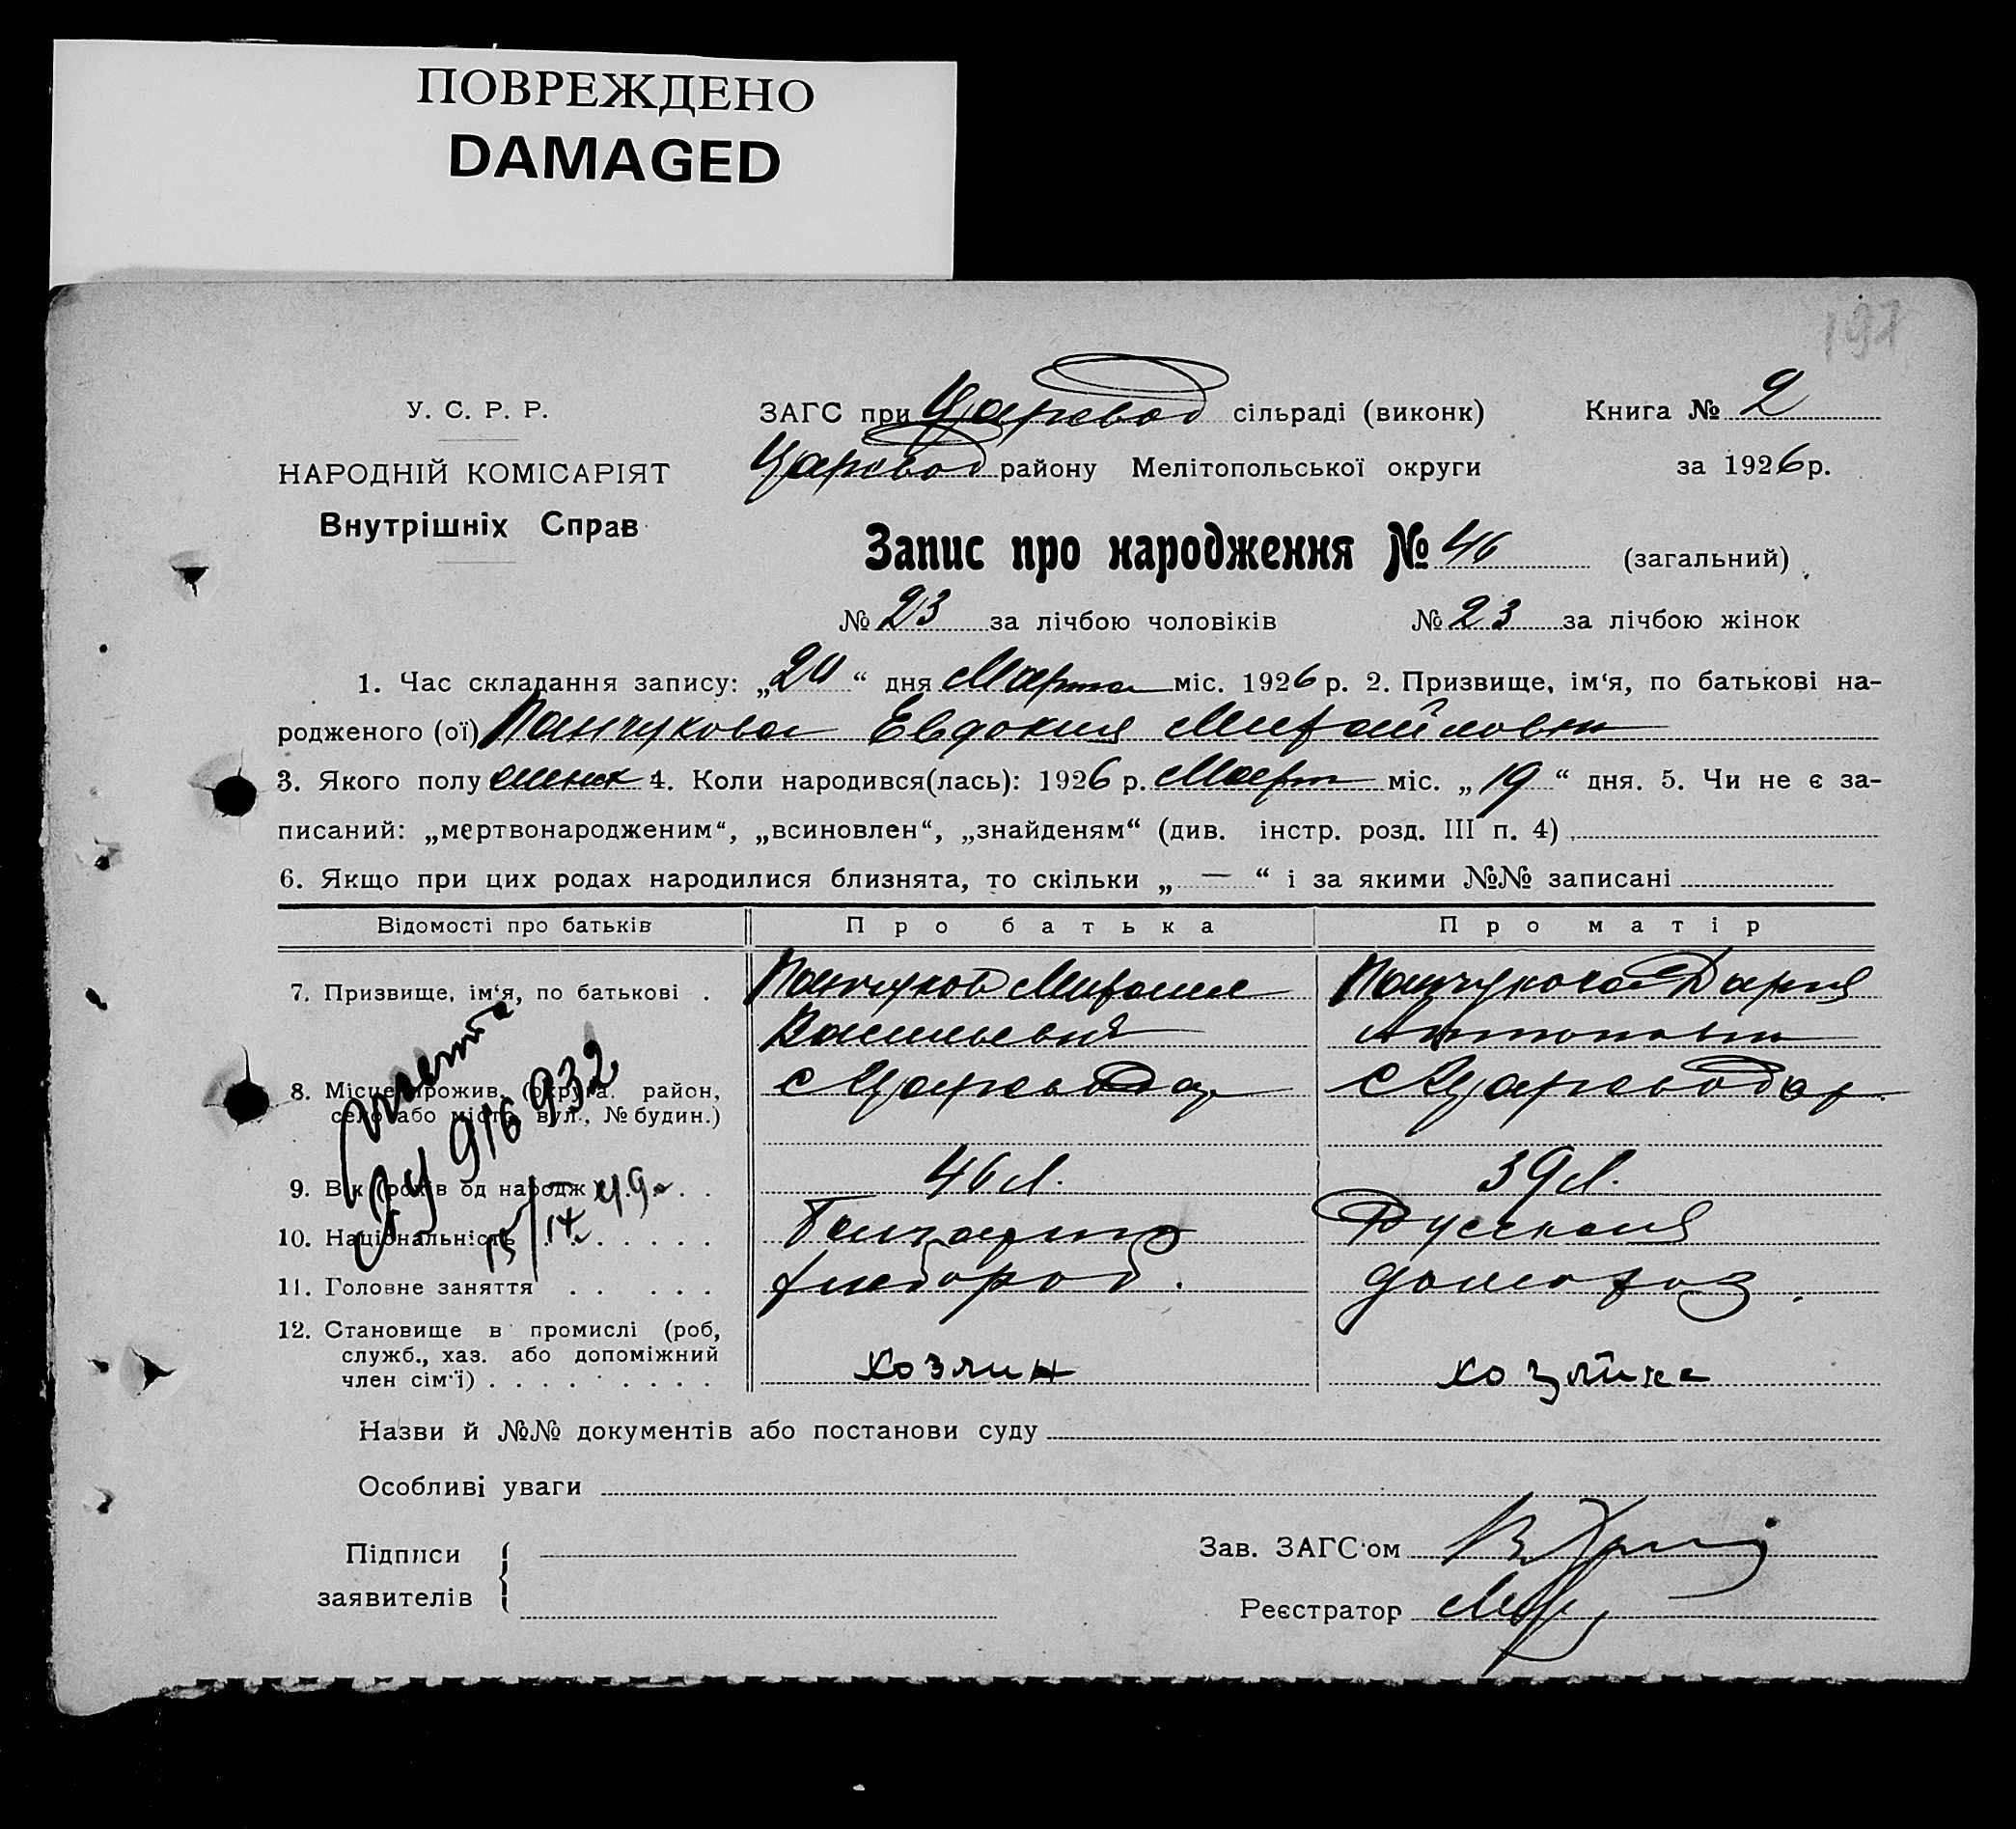 ПОВРЕЖДЕНО
DAMAGED
У. С. Р. Р.
НАРОДНІЙ КОМІСАРІЯТ
Внутрішніх Справ
ЗАГС при Царевод сільраді (виконк) Книга № 2
Царевод району Мелітопольської округи за 1926 р.
Запис про народження № 46 (загальний)
№ 23 за лічбою чоловіків № 23 за лічбою жінок
1. Час складання запису: „20“ дня Марта міс. 1926 р. 2. Призвище, ім‘я, по батькові на-
родженого (ої) Панчукова Евдокия Михайловн
3. Якого полу женск 4. Коли народився(лась): 1926 р. Март міс. „19“ дня. 5. Чи не є за-
писаний: „мертвонародженим“, „всиновлен“, „знайденям“ (див. інстр. розд. III п. 4)
6. Якщо при цих родах народилися близнята, то скільки „—“ і за якими №№ записані
Відомості про батьків Про батька Про матір
7. Призвище, ім‘я, по батькові . Панчуков Михаил Панчукова Дария
Васильевич Антоновн
8. Місце прожив. (округа. район, с Цареводар с Цареводар
село або місто, вул., № будин.)
916932
9. Вік (років од народж 46 л. 39 л.
10. Національність Болгарин Русская
11. Головне заняття хлебороб. домохоз.
12. Становище в промислі (роб,
служб., хаз. або допоміжний
член сім‘ї) хозяин хозяйка
Назви й №№ документів або постанови суду
Особливі уваги
Підписи
заявителів
Зав. ЗАГС‘ом
Реєстратор